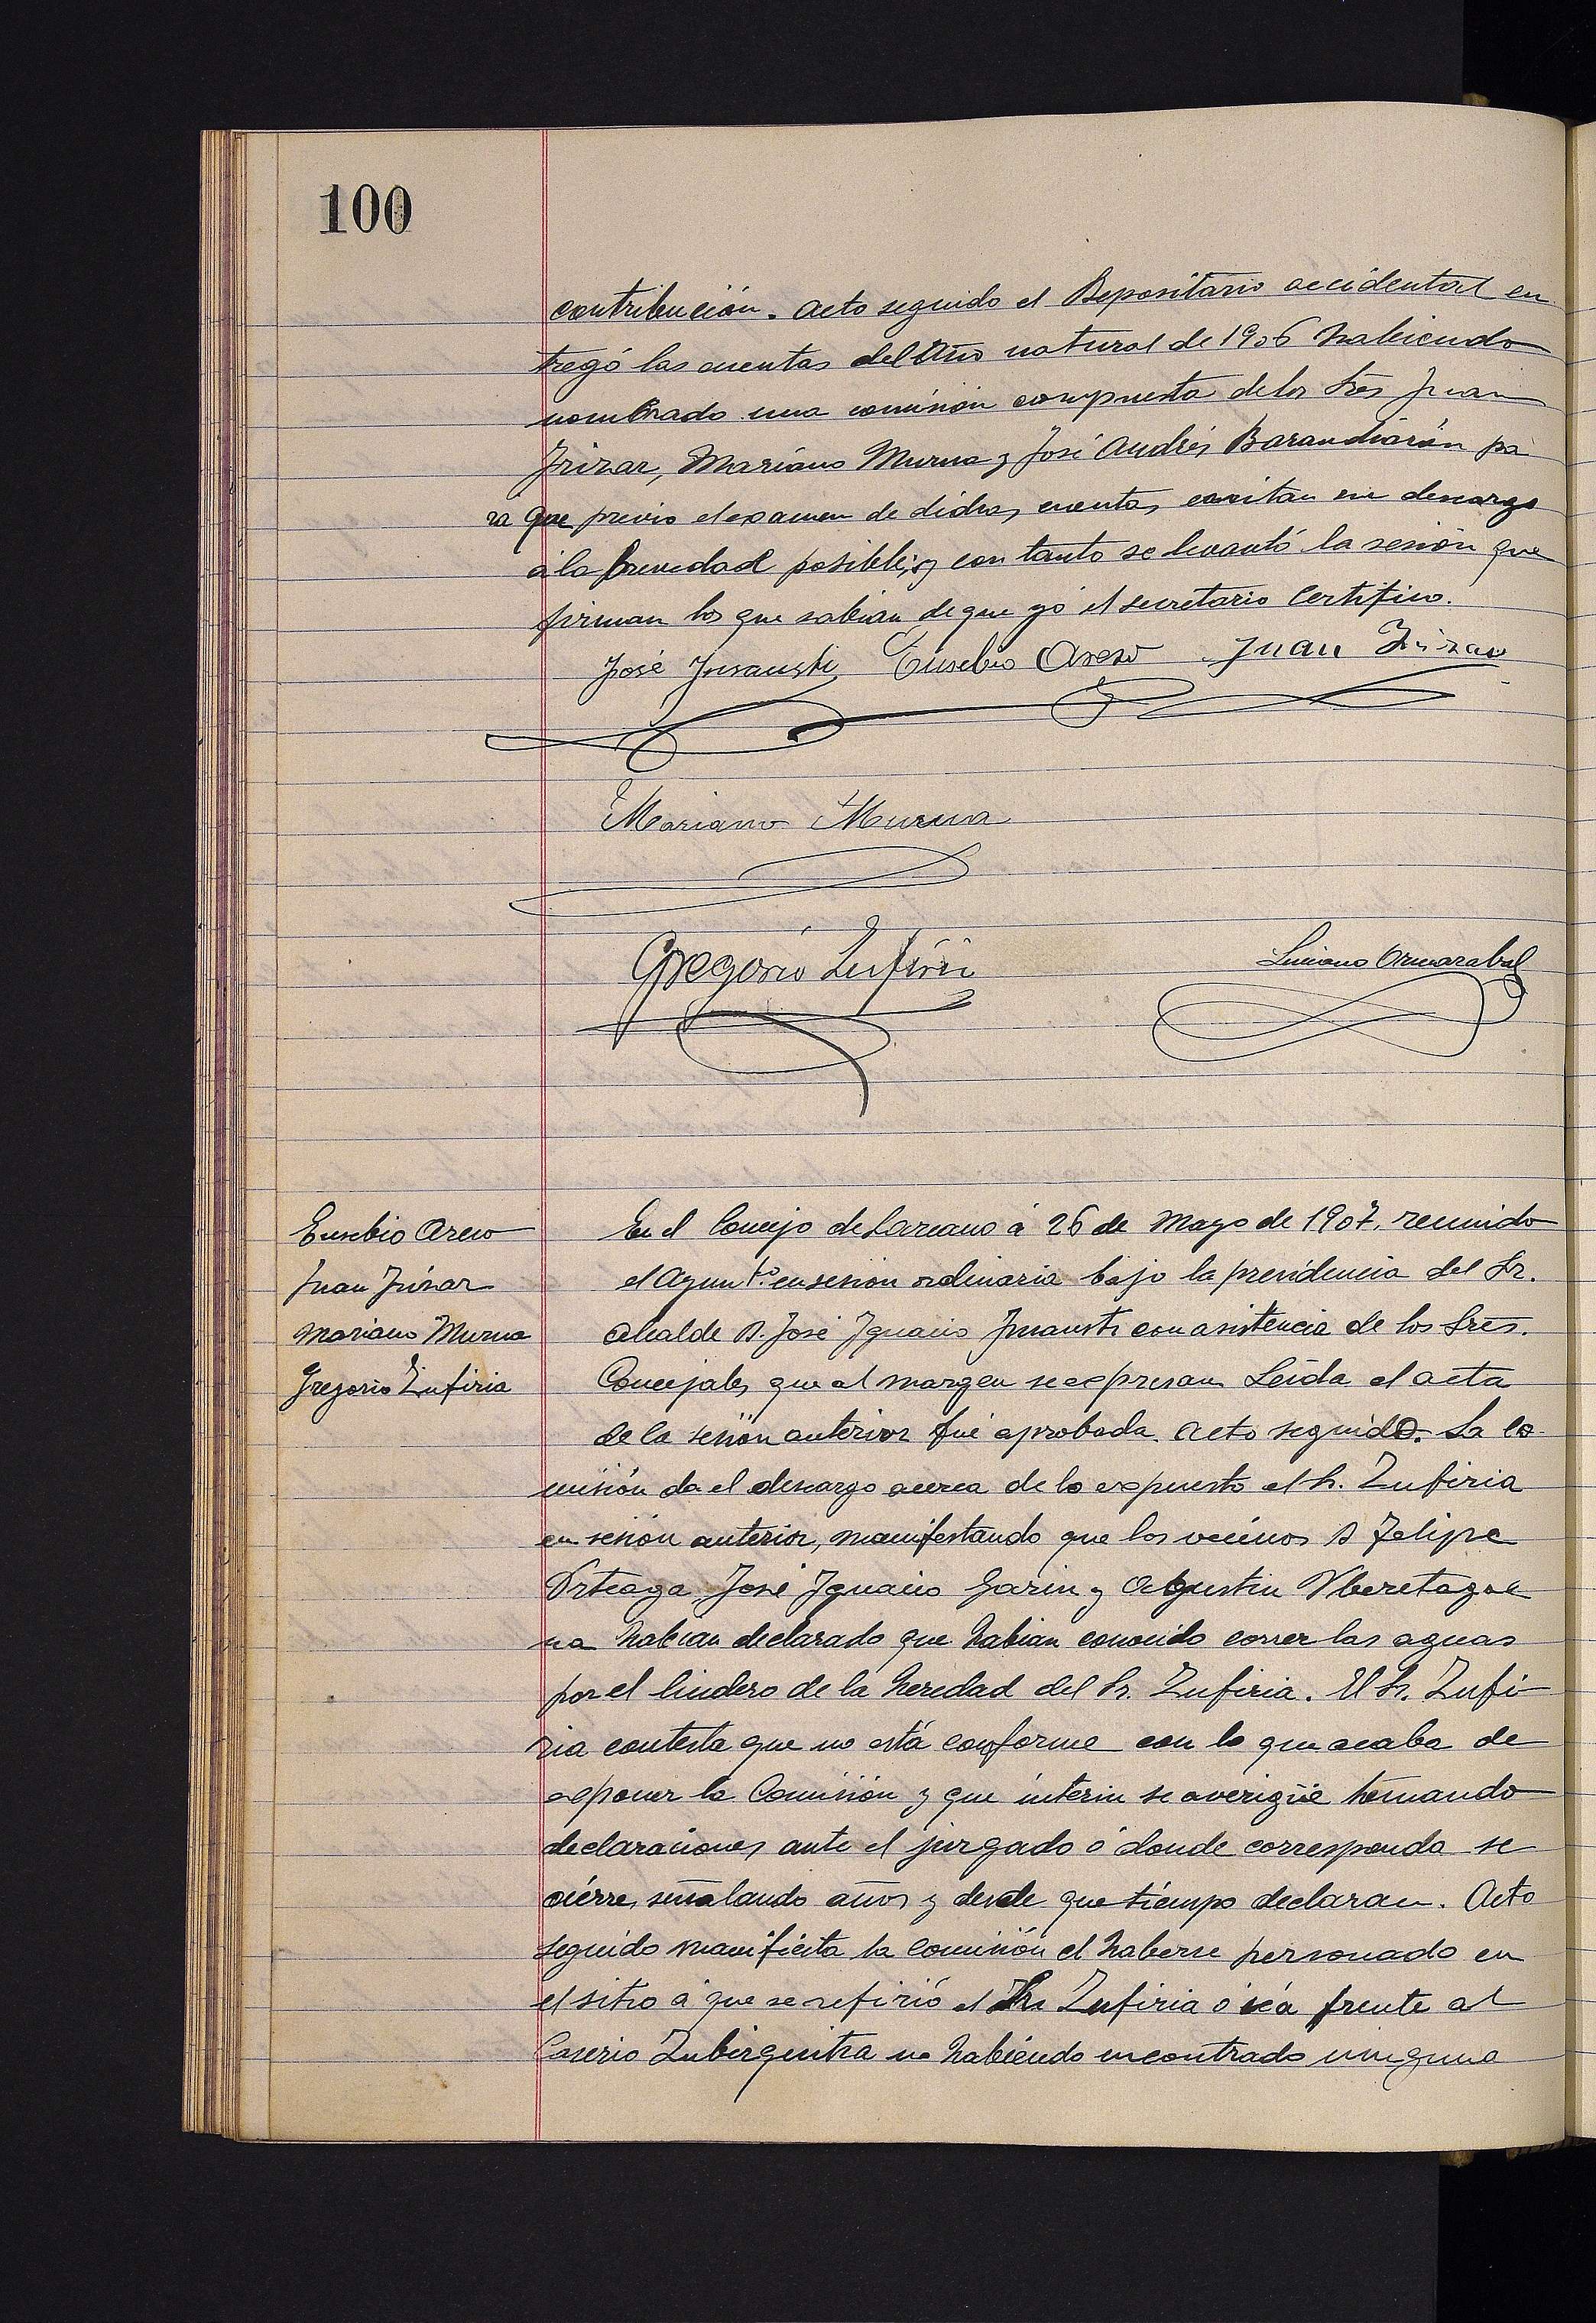 100
contribución. Acto seguido el Depositario accidental en
tregó las cuentas del Año natural de 1906 habiendo
nombrado una comisión compuesta de los Sres Juan
Irizar, Mariano Murua y José Andrés Barandiarán pa
ra que previo el examen de dichas cuentas emitan su descargo
á la brevedad posible; y con tanto se levantó la sesión que
firman los que sabian de que yó el secretario Certifico.
José Insausti Eusebio Areso Juan Irizar
Mariano Murua
Gregorio Zufiria
Luciano Ormazabal
Eusebio Areso
Juan Irizar
Mariano Murua
Gregorio Zufiria
En el Concejo de Lazcano á 26 de Mayo de 1907, reunido
el Ayunto. en sesion ordinaria bajo la presidencia del Sr.
Alcalde D. José Ignacio Insausti con asistencia de los Sres.
Concejales que al margen se expresan. Leida el acta
de la sesión anterior fué aprobada. Acto seguido. La co-
misión da el descargo acerca de lo expuesto el Sr. Zufiria
en sesión anterior, manifestando que los vecinos D Felipe
Urteaga, José Ignacio Garin y Agustin Uberetagoe
na habian declarado que habian conocido correr las aguas
por el lindero de la heredad del Sr. Zufiria. El Sr. Zufi-
ria contesta que no está conforme con lo que acaba de
exponer la Comisión y que interin se averigüe tomando
declaraciones ante el juzgado ó donde corresponda se
cierre, señalando años y desde que tiempo declaran. Acto
seguido manifiesta la comisión el haberse personado en
el sitio á que se refirió el Sr. Zufiria ó séa frente al
Caserio Zubierguitxa no habiendo encontrado ninguna